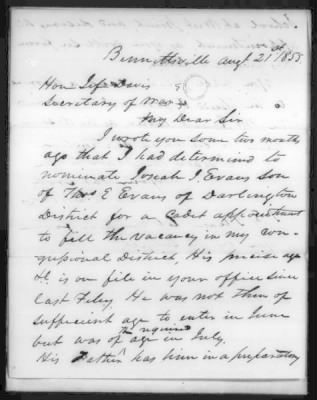 Bennettsville Augt. 21st 1855
Hon Jef Davis
Secretary of War
My Dear Sir
I wrote you some two months
ago that I had determind to
nominate Josiah J Evans Son
of Thos E Evans of Darlington
District for a Cadet appointment
to fill the vacancy in my con-
gressional District. His precise age
&c is on file in your office since
last Feby He was not then of
sufficient age to enter in June
but was of the required age in July.
His Father has him in a preparatory